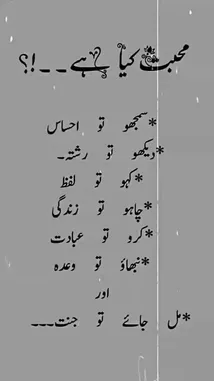 محبت کیا ہے۔۔!؟
*سمجھو تو احساس
*دیکھو تو رشتہ۔
*کہو تو لفظ
*چاہو تو زندگی
*کرو تو عبادت
*نبھاؤ تو وعدہ
اور
*مل جائے تو جنت۔۔۔۔